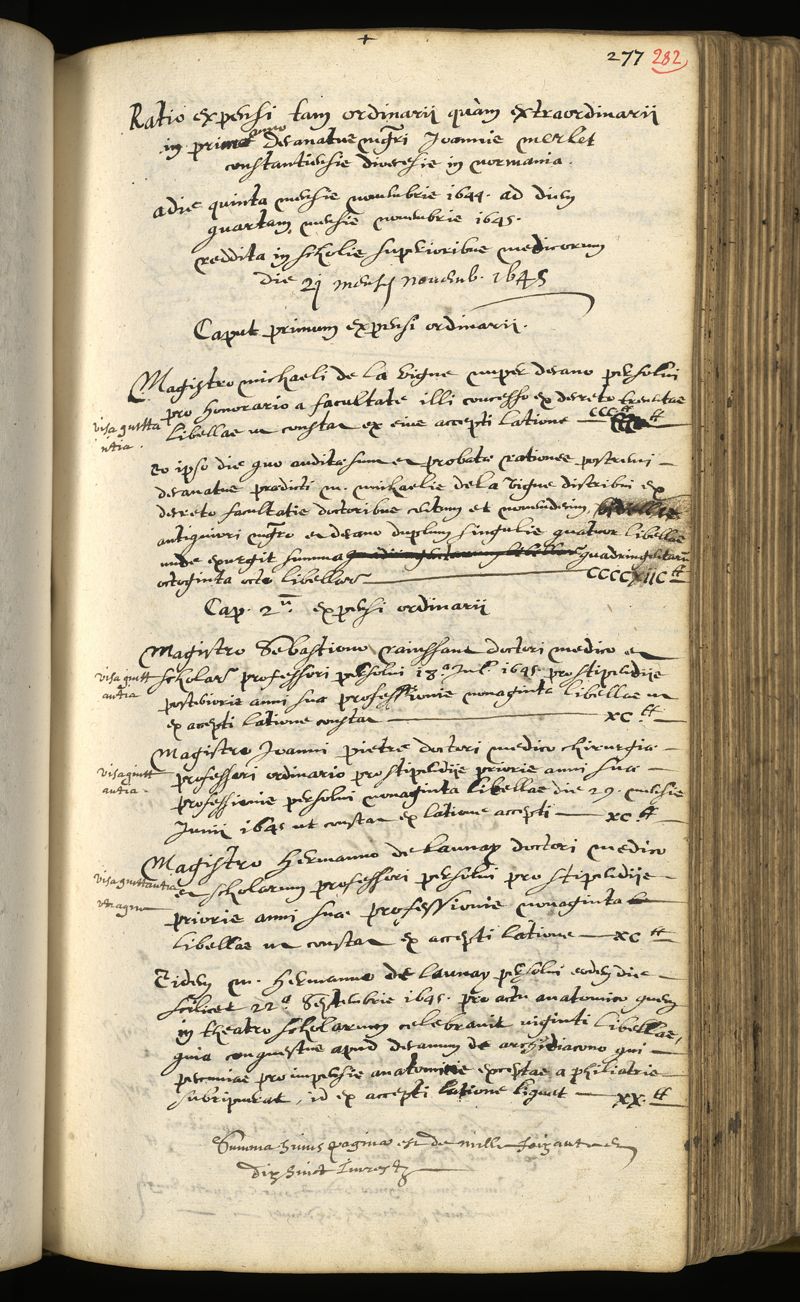 277 282
Ratio expensi tam ordinarij quàm extraordinarij
in primo anno decanatus mgri Joannis merlet
constantiensis diocesis in normania.
adie quinta mensis nouembris 1644. ad diem
quartam mensis nouembris 1645.
reddita in scholis superioribus medicorum
die 2j mensis nouemb. 1645
Caput primum expensi ordinarij.
Magistro michaeli de la vigne nuper decano persolui
pro honorario a facultate illi concesso ex decreto
libellas ut constat ex eius accepti latione
visa quitta
ntia.
eo ipso die quo auditae sunt et probatae rationes postremi
decanatus praedicti m. michaelis dela vigne distribui ex
decreto facultatis doctoribus centum et nouendecim, bidellis
antiquiori mgro et decano duplum singulis quatuor libellas
unde exurgit summa quadringentarum
octoginta octo libellarum CCCCXIIC tt
Cap. 2um. expensi ordinarij
Magistro Sebastiono rainssant doctori medico et
scholarum professori persolui 18a Jul. 1645. pro stipendijs
posterioris anni suae professionis nonaginta libellas ut
ex accepti latione constat XC tt
visa quitt
antia
Magistro Joanni pietre doctori medico chirurgiae
professori ordinario pro stipendijs prioris anni suae
professionis persolui nonaginta libellas die 29. mensis
Junij 1645 ut constat ex latione accepti XC tt
visa quitt
antia.
Magistro Hermanno de Launay doctori medico
et scholarum professori persolui pro stipendijs
prioris anni suae professionis nonaginta
libellas ut constat ex accepti latione XC tt
visa quittantia
Eidem m. Hermanno de Launay persolui eodem die
scilicet 22a Septembris 1645. pro actu anatomico quem
in theatro scholarum celebrauit viginti libellas,
quia conquestus apud decanum de archidiacono qui
pecunias pro impensis anatomicis exceptas a philiatris
subripuerat, id ex accepti latione liquet XX. tt
Summa huius paginae est de mille soixante et
dix huict liures tz